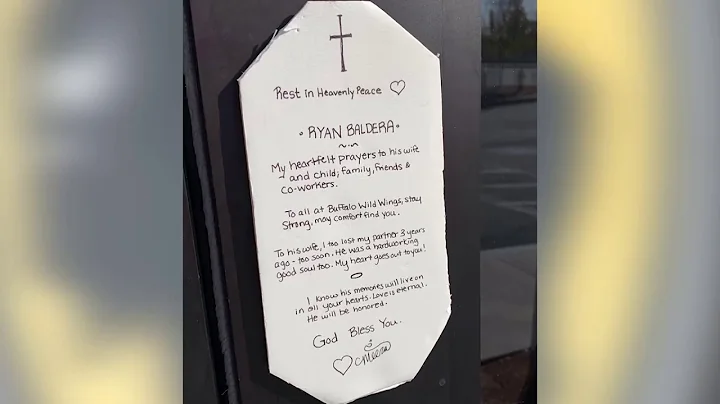 Rest in Heavenly Peace
RYAN BALDERA
My heartfelt prayers to his wife
and child; family, friends &
co-workers.
To all at Buffalo Wild Wings, stay
Strong, may comfort find you.
To his wife, I too lost my partner 3 years
ago - too soon. He was a hardworking
good soul too. My heart goes out to you!
I know his memories will live on
in all your hearts. Love is eternal.
He will be honored.
God Bless You.